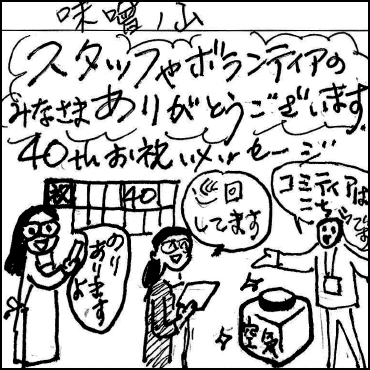 味噌ノ
スタッフやボランティアの
みなさまありがとうございます
40thお祝いメッセージ
祝 40
巡回
してます
コミティアは
こちらです
のり
あります
よ
空気